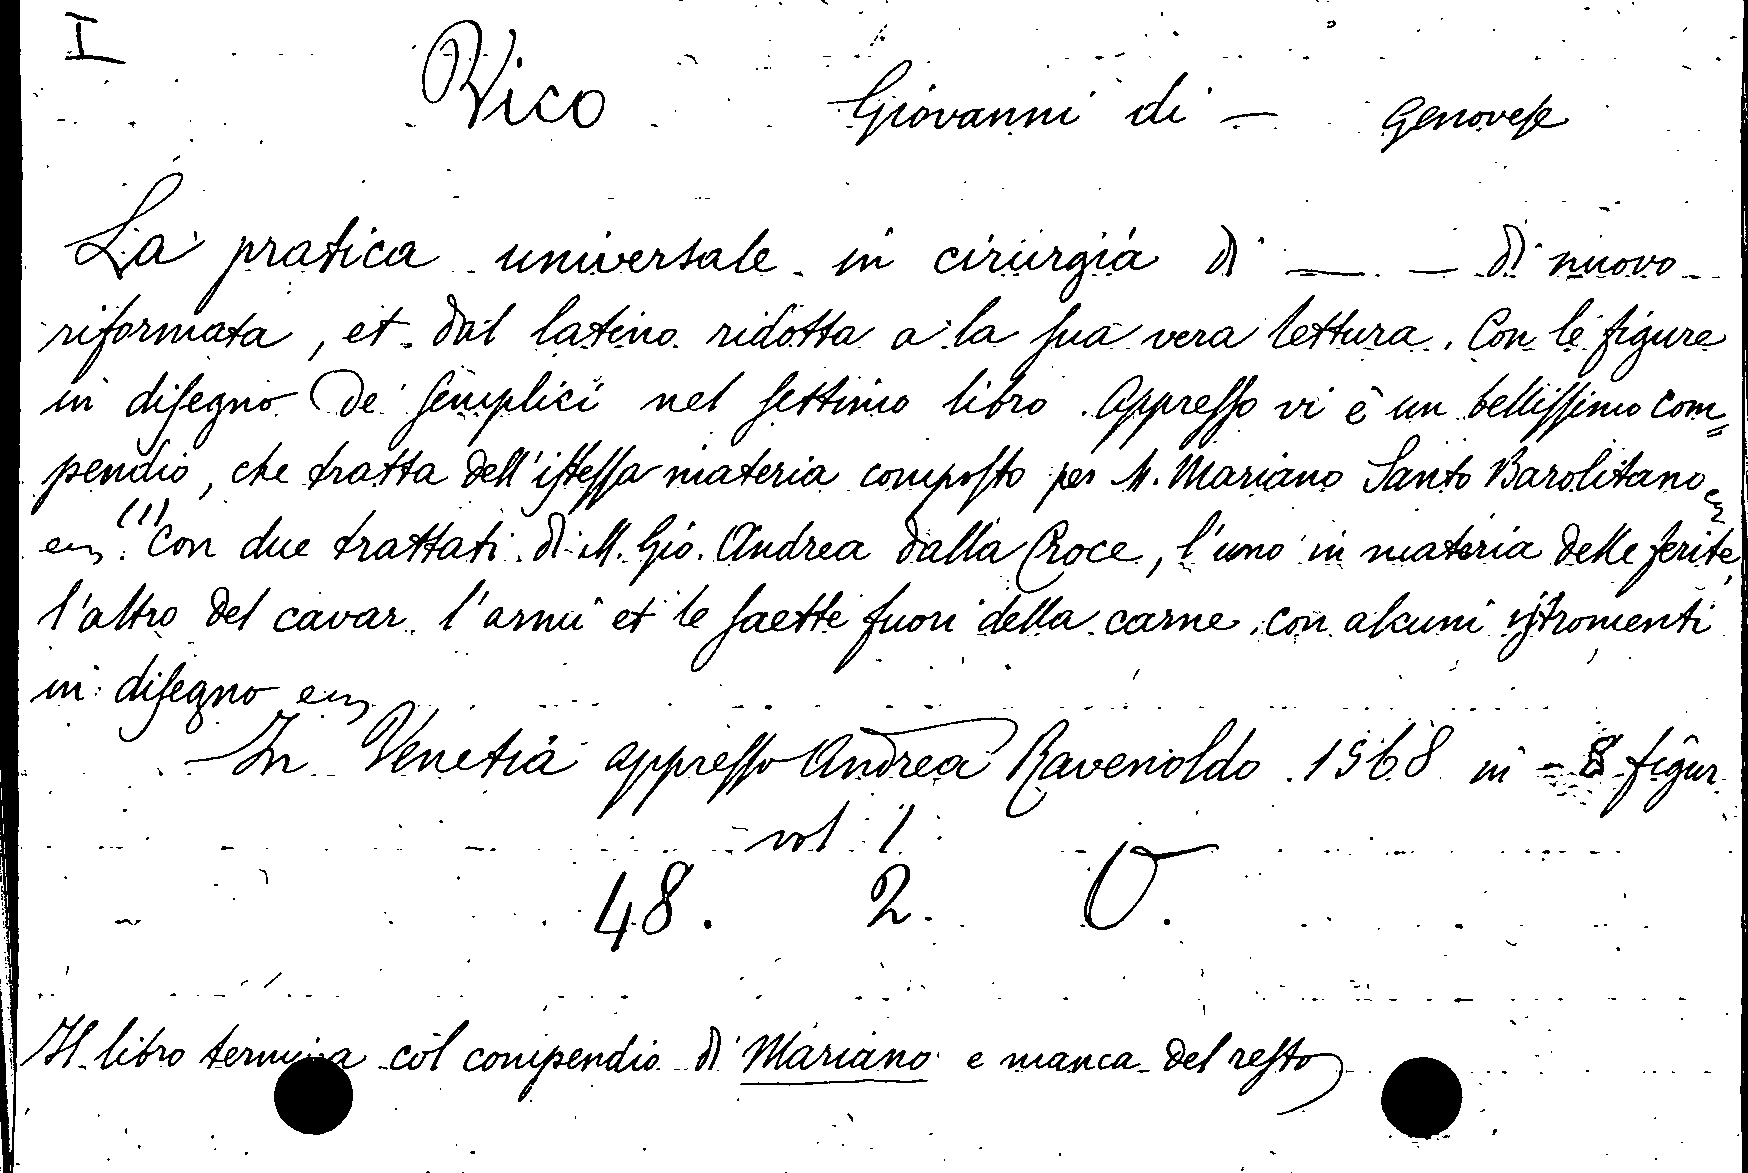 I
Vico Giovanni di — Genovese
La pratica universale in cirurgia di — — di nuovo
riformata, et dal latino ridotta a la sua vera lettura. Con le figure
in disegno de' semplici nel settimo libro. Appresso vi è un bellissimo com=
pendio, che tratta dell'istessa materia composto per M. Mariano Santo Barolitano
(1) Con due trattati di M. Gio. Andrea dalla Croce, l'uno in materia delle ferite,
l'altro del cavar l'armi et le saette fuori della carne con alcuni istromenti
in disegno
In Venetia appresso Andrea Ravenoldo 1568 in -8 figur.
vol 1
48. 2. O.
Il libro termina col compendio di Mariano e manca del resto